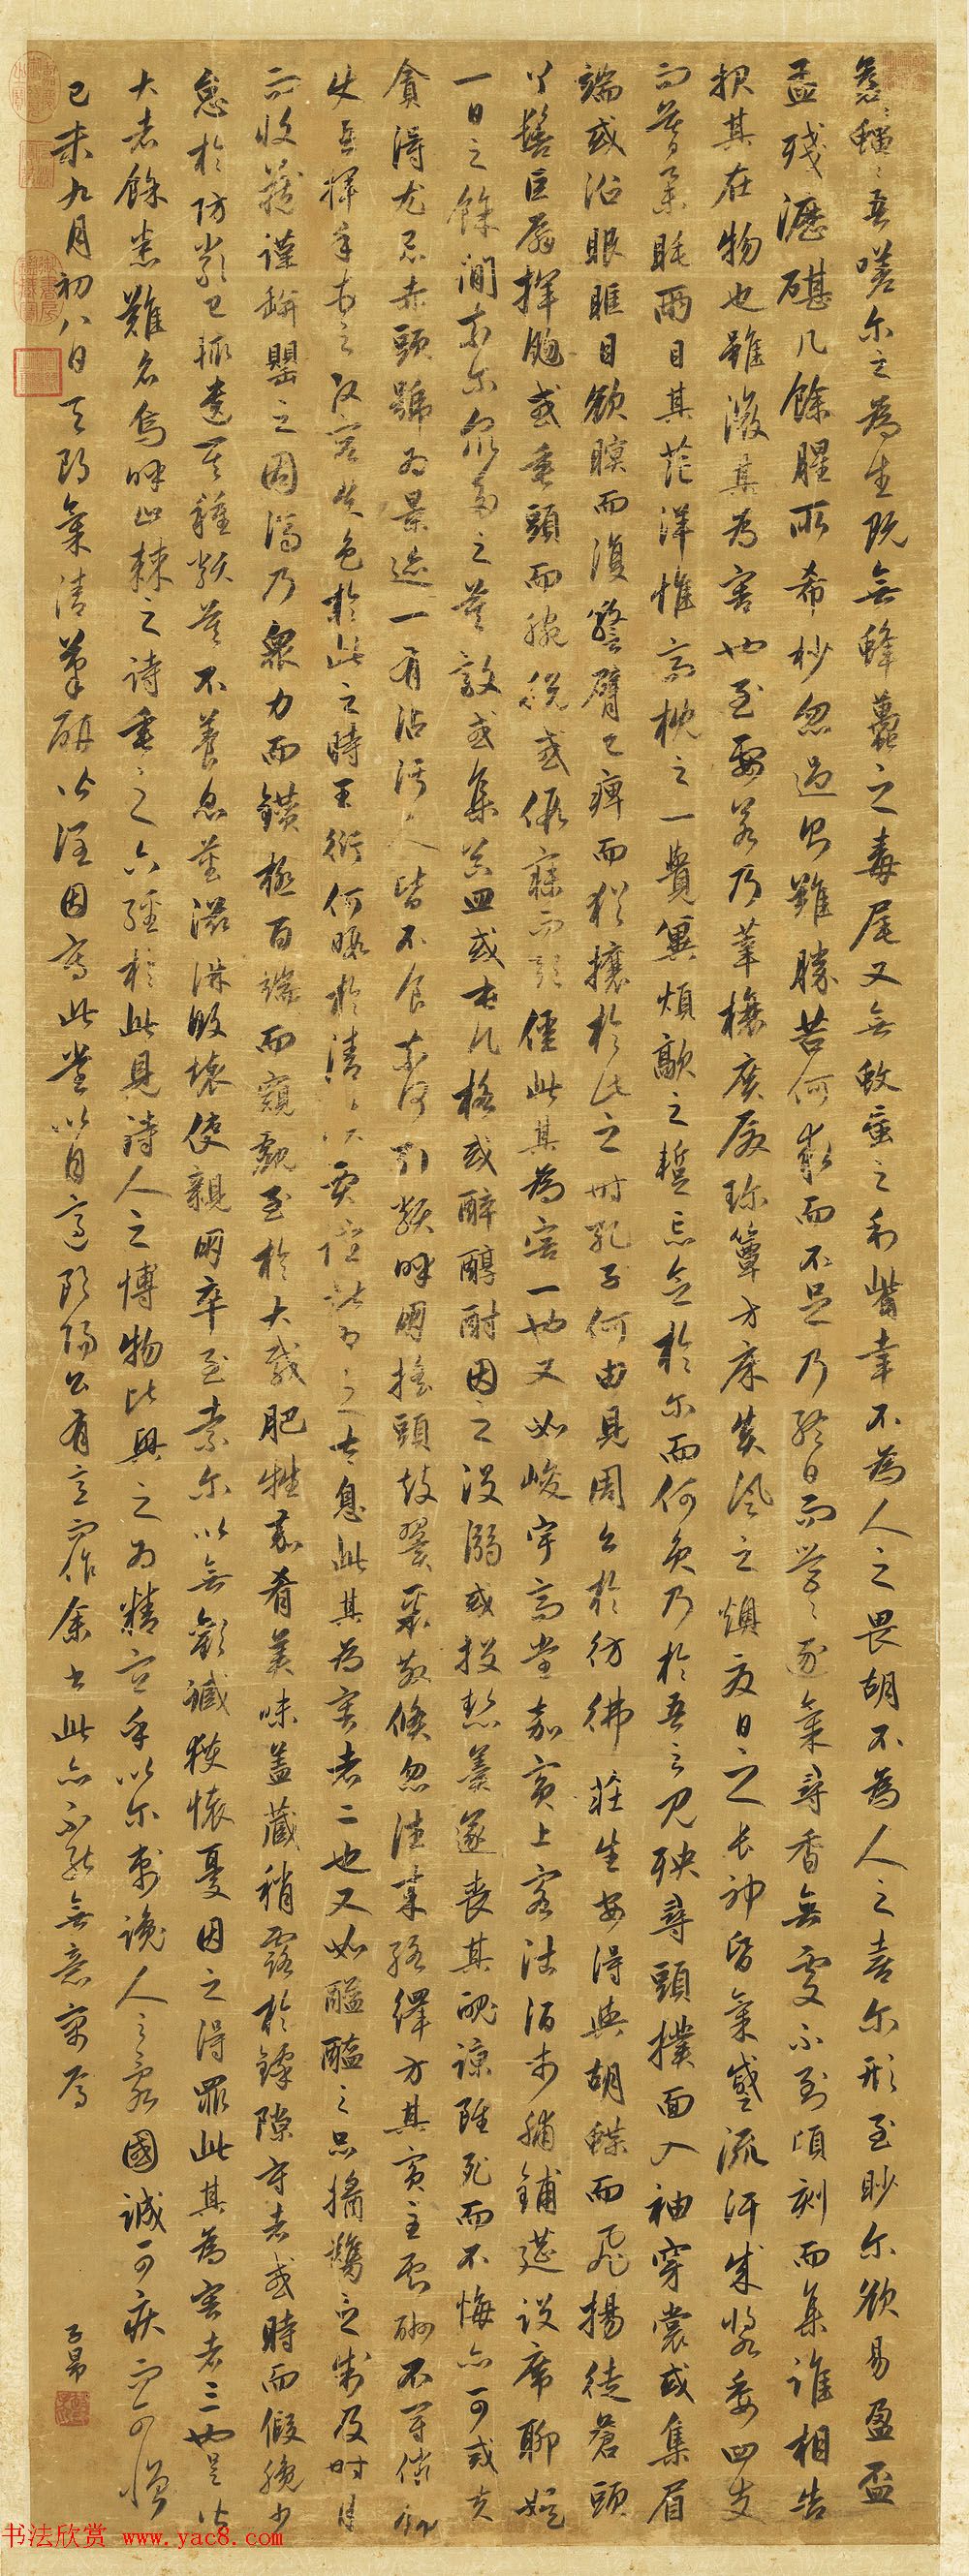 蒼蠅蒼蠅吾嗟爾之為生既無蜂蠆之毒尾又無蚊虻之利觜幸不為人之畏胡不為人之喜爾形至眇爾欲易盈盃
盂殘瀝碪几餘腥所希杪忽過則難勝苦何求而不足乃終日而營營逐氣尋香無處不到頃刻而集誰相告
報其在物也雖微其為害也至要若乃華榱廣廈珍簟方床炎風之燠夏日之長神昏氣蹙流汗成漿委四支
而莫舉眊兩目其茫洋惟高枕之一覺冀煩歊之暫忘念於爾而何負乃於吾而見殃尋頭撲面入袖穿裳或集眉
端或沿眼眶目欲瞑而復警臂已痺而猶攘於此之時孔子何由見周公於彷彿莊生安得與胡蝶而飛揚徒蒼頭
丫髻巨扇揮颺或垂頭而腕脫或假寐而顛僵此其為害一也又如峻宇高堂嘉賓上客沽酒市脯鋪筵設席聊娛
一日之餘閒奈爾眾多之莫敵或集器皿或屯几格或醉醇酎因之沒溺或投熱羹遂喪其魄諒雖死而不悔亦可戒夫
貪得尤忌赤頭號為景迹一有沾汙人皆不食奈何引類呼朋搖頭鼓翼聚散倏忽往來絡繹方其賓主獻酬不暇備
使吾揮手頓足改容失色於此之時王衍何暇於清談賈誼堪為之太息此其為害者二也又如醯醢之品醬臡之制及時月
而收藏謹缾罌之固濟乃眾力而鑽極百端而窺覬至於大胾肥牲嘉肴美味蓋藏稍露於罅隙守者或時而假寐少
怠於防嚴已輒遺其種類莫不養息蕃滋淋敗壞使親朋卒至索爾以無歡臧獲懷憂因之得罪此其為害者三也是皆
大者餘悉難名嗚呼止棘之詩垂之六經於此見詩人之博物比興之為精宜乎以爾刺讒人之亂國誠可疾而可憎
己未九月初八日天朗氣清筆硯以潔因高此堂以自適歐陽公有言作余書此亦不能無意寓焉
子昂
书法欣赏 www.yac8.com